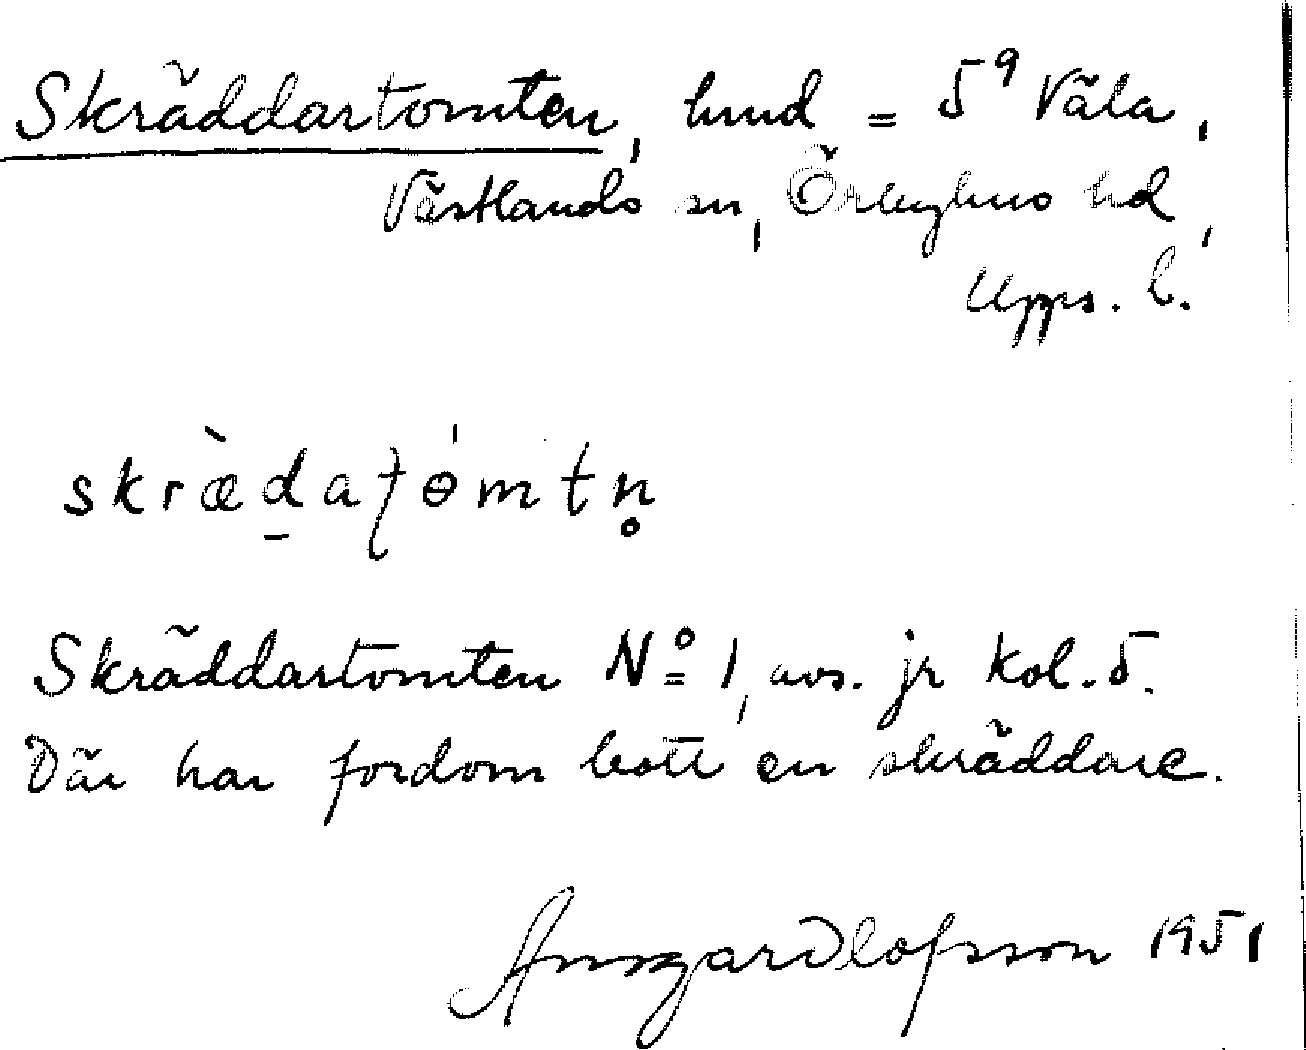 Skräddartomten, hmd = 5⁹ Väla,
Västlands sn, Örbyhus hd,
Upps. l.
skræ̀d̠aƫɵ́mtn̥
Skräddartomten Nº 1, avs. jr kol. 5.
Där har fordom bott en skräddare.
Ansgar Olofsson 1951